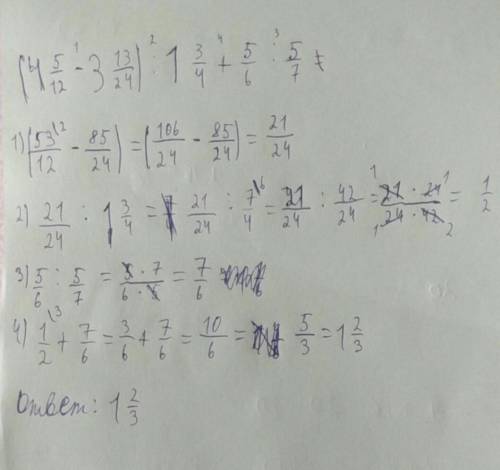 (4 5/12 - 3 13/24) : 1 3/4 + 5/6 : 5/7 =
1) (53/12 - 85/24) = (106/24 - 85/24) = 21/24
2) 21/24 : 1 3/4 = 21/24 : 7/4 = 21/24 : 42/24 = 21 · 24/24 · 42 = 1/2
3) 5/6 : 5/7 = 5 · 7/6 · 5 = 7/6
4) 1/2 + 7/6 = 3/6 + 7/6 = 10/6 = 5/3 = 1 2/3
Ответ: 1 2/3